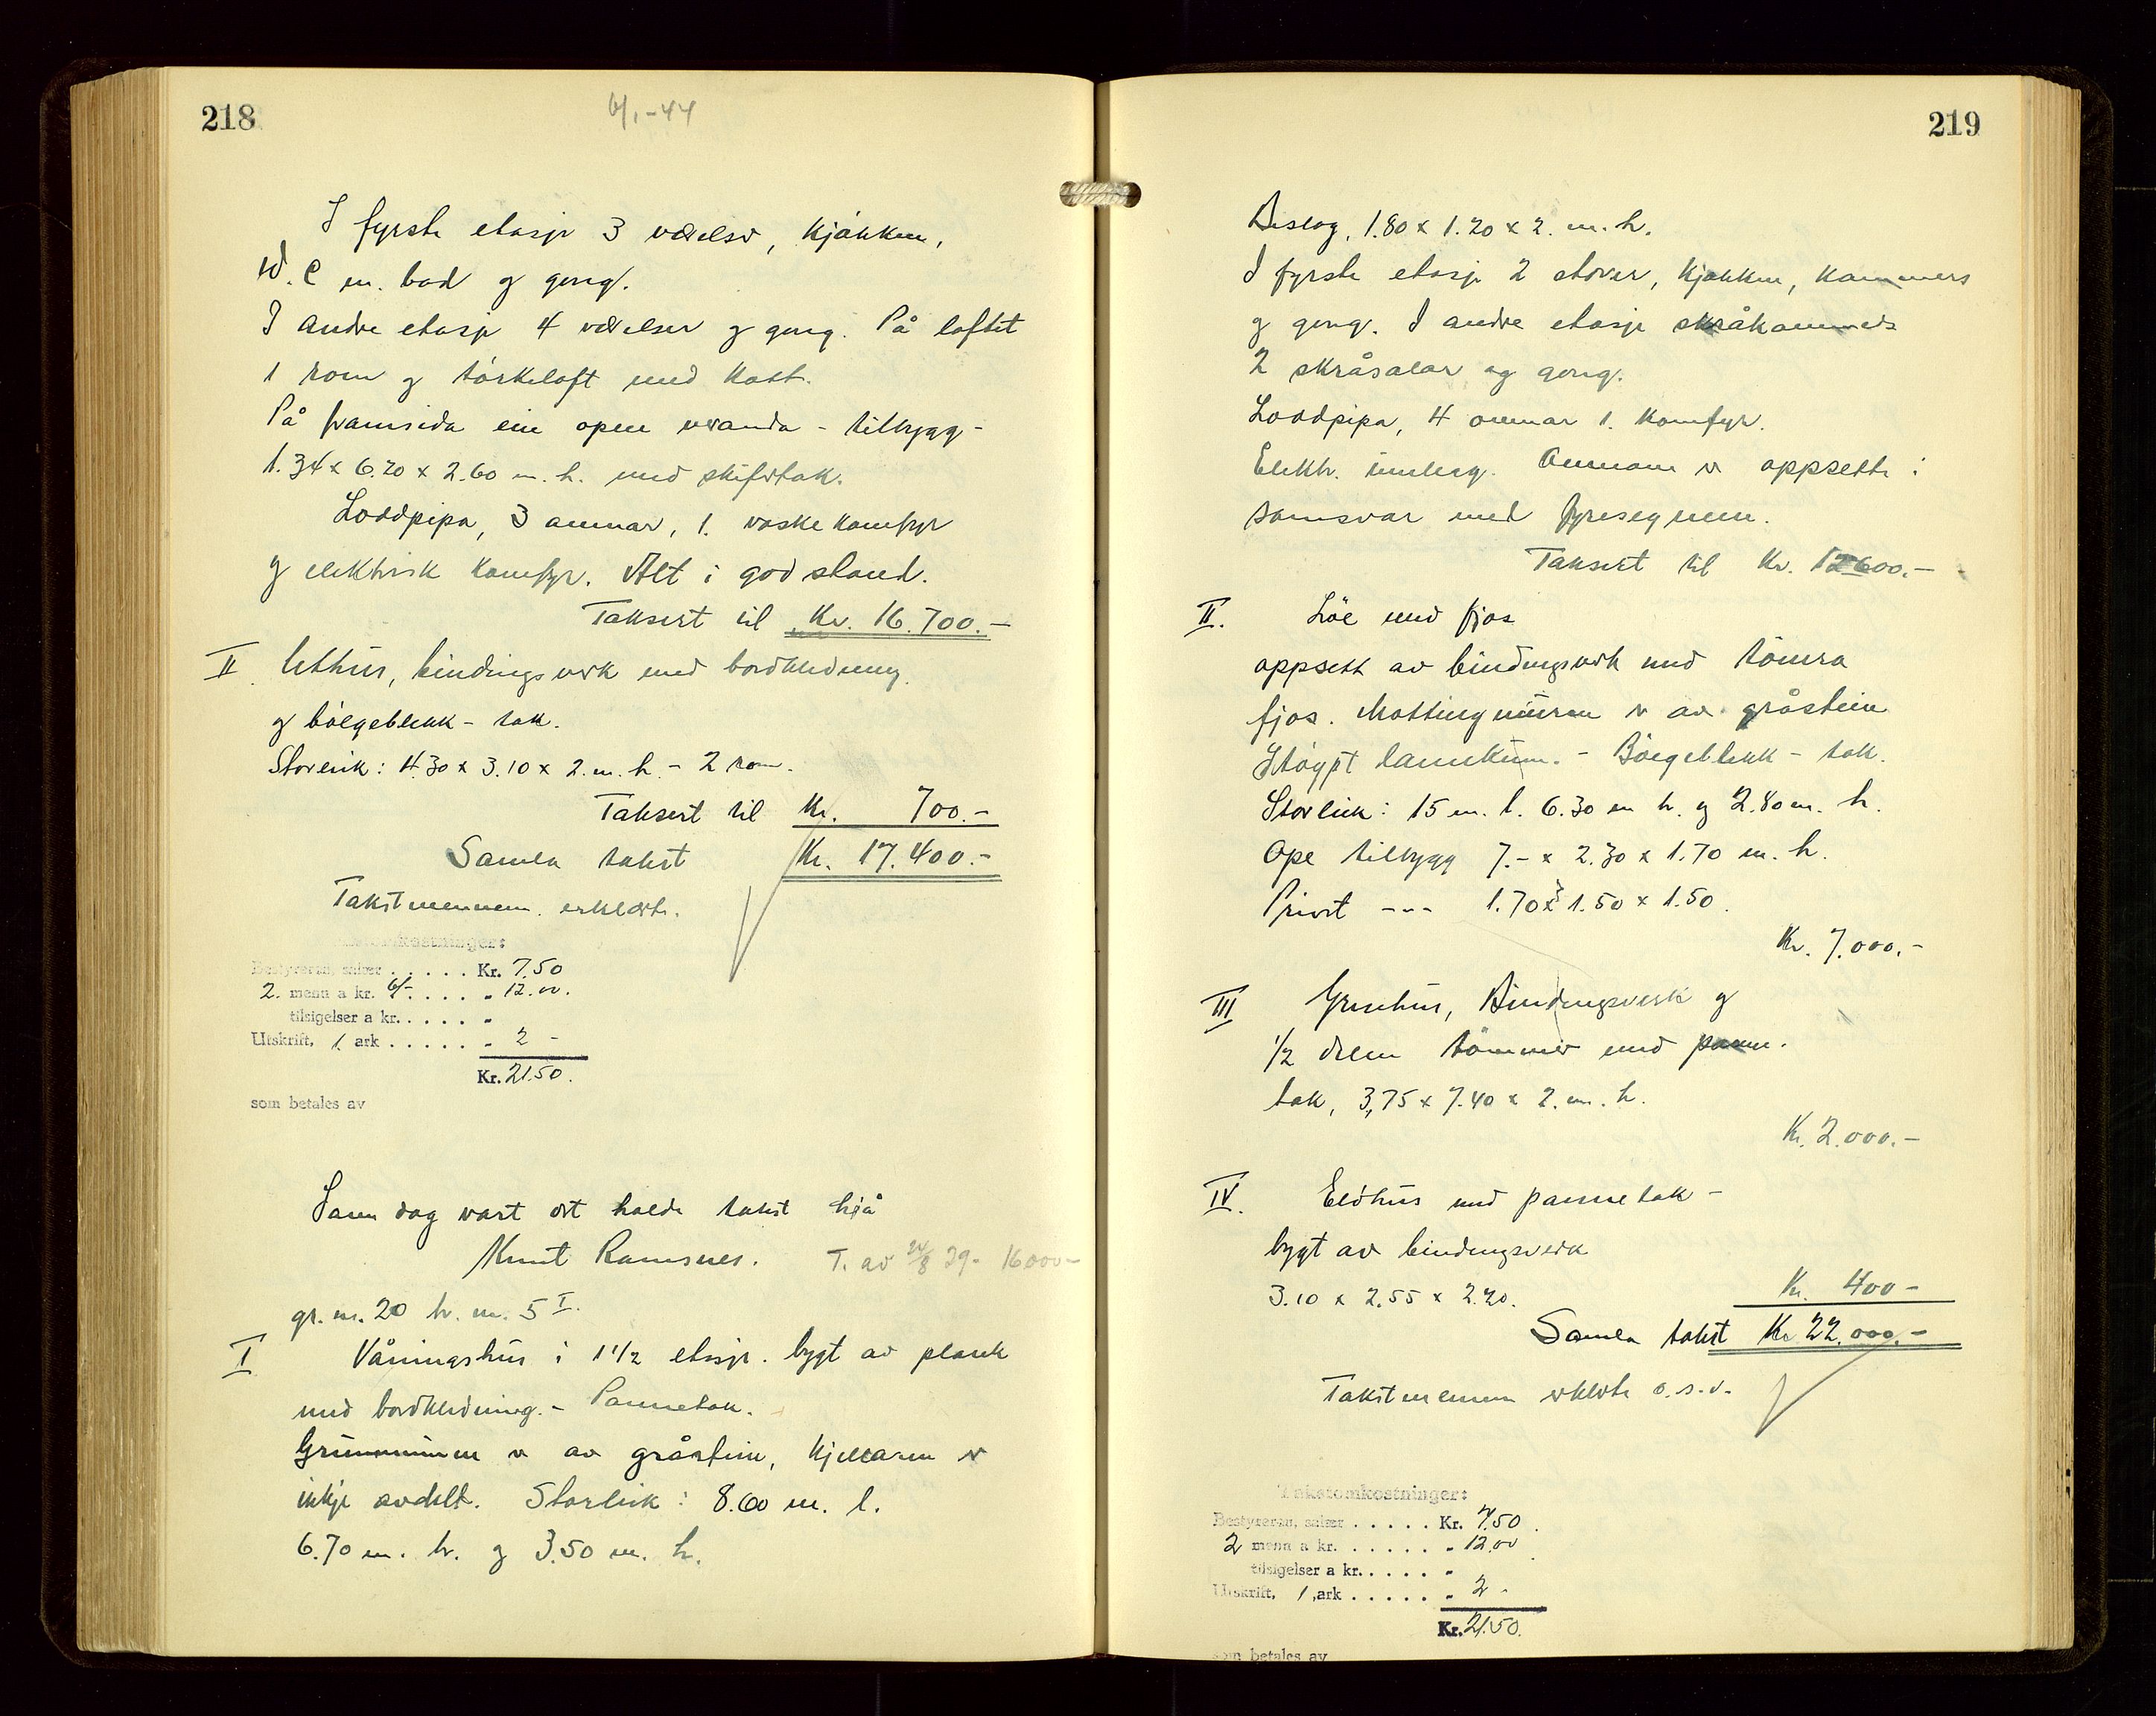 218
6/1-44
I fyrste etasje 3 værelser, kjøkken,
W.C m. bad og gong.
I andre etasje 4 værelser og gong. På loftet
1 rom og tørkeloft med kott.
På framsida ein open veranda - tilbygg -
1.34 x 6.20 x 2.60 m. h. med skifertak.
Loddpipa, 3 omnar, 1. vaskekomfyr
og elektrisk komfyr. Alt i god stand.
Taksert til Kr. 16.700.-
II. Uthus, bindingsverk med bordkledning
og bølgeblekk-tak.
Storleik: 4.30 x 3.10 x 2. m. h. - 2 rom.
Taksert til Kr. 700.-
Samla takst Kr. 17.400.-
Takstmennene erklærte.
Takstomkostninger:
Bestyreren, salær ..... Kr. 7.50
2. menn a kr. 6/- .... " 12.00.
tilsigelser a kr. .... "
Utskrift, 1. ark ..... " 2 -
Kr. 21.50.
som betales av
Same dag vart det halde takst hjå
Knut Ramsnes. T. av 24/8 29 - 16000-
gr. nr. 20 br. nr. 5 I.
I Våningshus i 1 1/2 etasje. bygt av plank
med bordkledning. - Pannetak.
Grunnmuren er av gråstein, kjellaren er
inkje avdelt. Storleik: 8.60 m. l.
6.70 m. br. og 3.50 m. h.
219
Bislag, 1.80 x 1.20 x 2. m. h.
I fyrste etasje 2 stover, kjøkken, kammers
og gong. I andre etasje skråkammers
2 skråsalar og gong.
Loddpipa, 4 omnar 1. komfyr.
Elektr. innlegg. Omnane er oppsette i
samsvar med fyresegnene.
Taksert til Kr. 12600.-
II. Löe med fjos
oppsett av bindingsverk med tømra
fjos. Mottingmuren er av gråstein
Støypt landkum. - Bølgeblekk-tak.
Storleik: 15 m. l. 6.30 m br. og 2.80 m. h.
Ope tilbygg 7.- x 2.30 x 1.70 m. h.
Privet --- 1.70 x 1.50 x 1.50.
Kr. 7.000.-
III Grisehus, Bindingsverk og
1/2 delen tømmer med panne.
tak, 3,75 x 7.40 x 2. m. h.
Kr. 2.000.-
IV. Eldhus med pannetak -
bygt av bindingsverk
3.10 x 2.55 x 2.20.
Kr. 400-
Samla takst Kr 22.000.-
Takstmennene erklærte o.s.v.
Takstomkostninger:
Bestyreren, salær ..... Kr. 7.50.
2 menn a kr. ...... " 12.00
tilsigelser a kr. .... "
Utskrift, 1 ark ..... " 2 -
Kr. 21.50.
som betales av